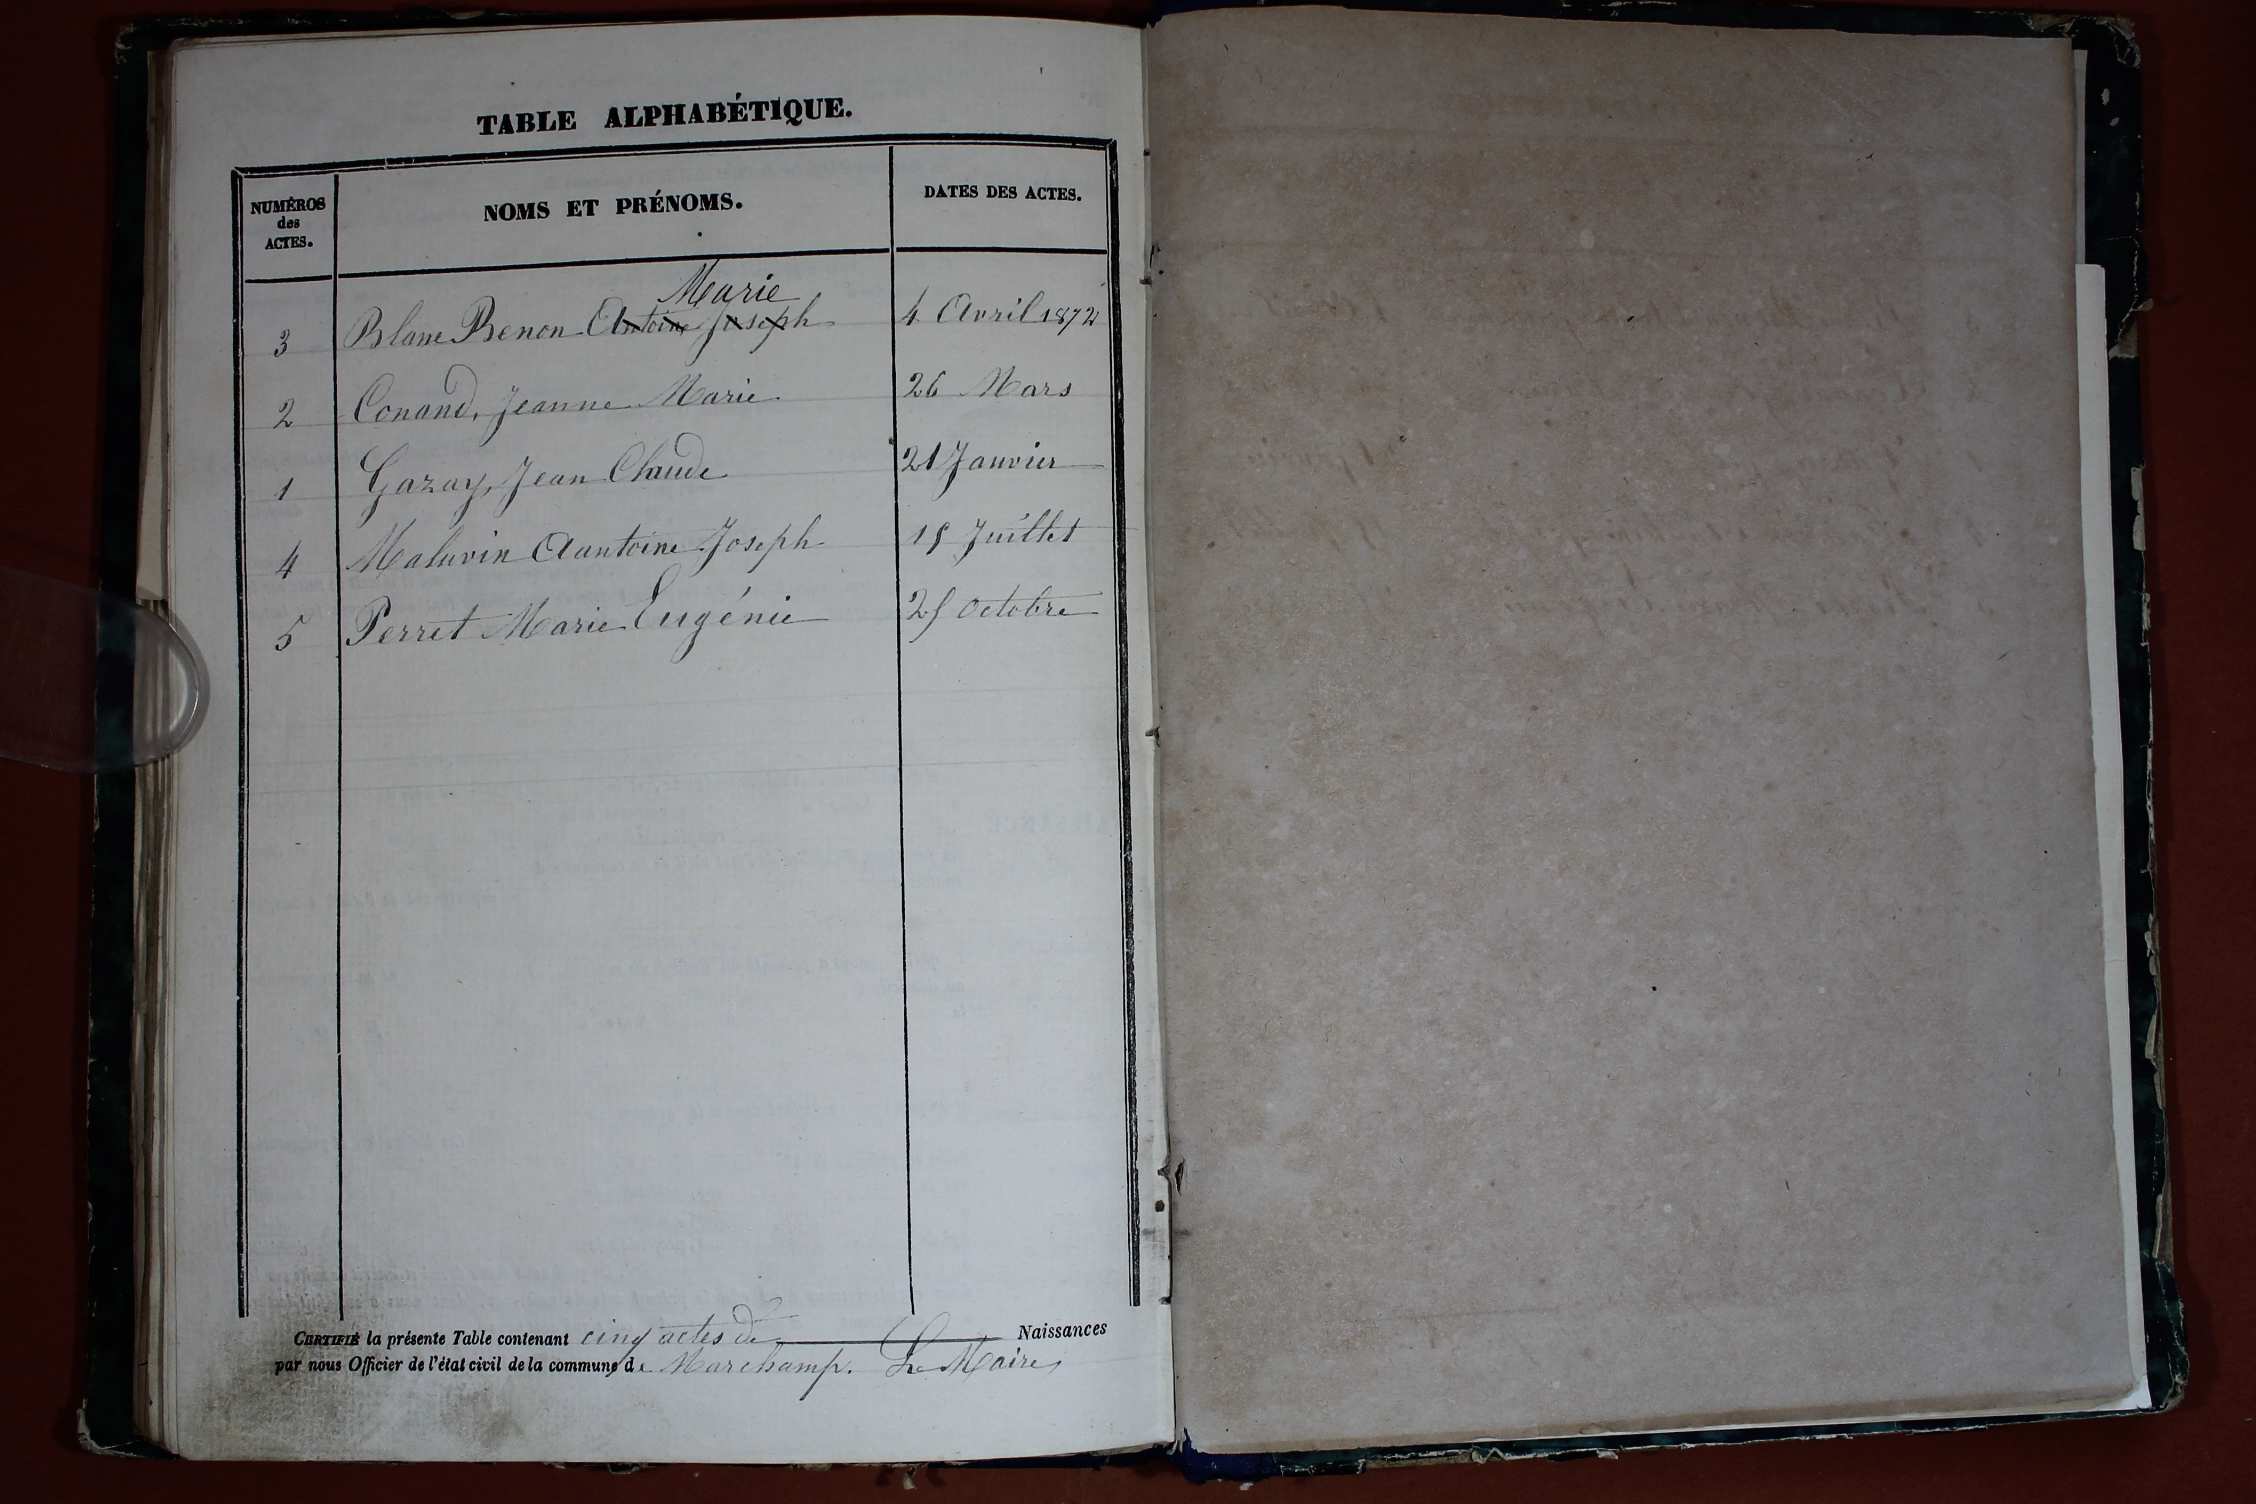 TABLE ALPHABÉTIQUE.
NUMÉROS
des
ACTES.
NOMS ET PRÉNOMS.
DATES DES ACTES.
Marie
3 Blanc Benon Antoine Joseph 4 Avril 1872
2 Conand, Jeanne Marie 26 Mars
1 Gazay, Jean Claude 21 Janvier
4 Maluvin Aantoine Joseph 15 Juillet
5 Perret Marie Eugénie 25 Octobre
CERTIFIÉ la présente Table contenant cinq actes de Naissances
par nous Officier de l'état civil de la commune de Marchamp. Le Maire